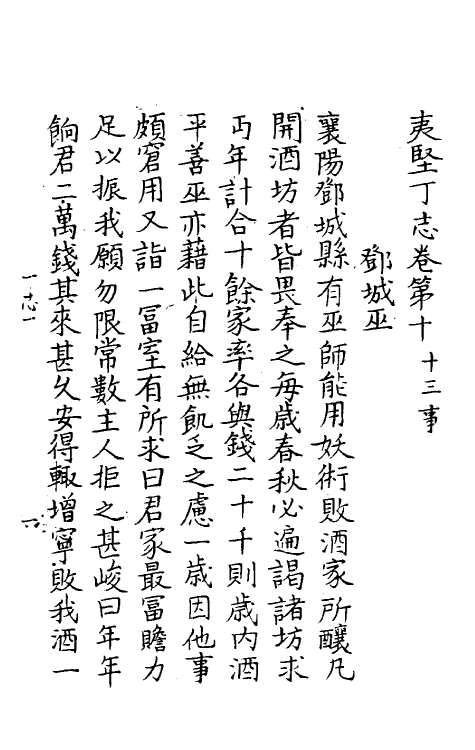 夷堅丁志卷第十 十三事
鄧城巫
襄陽鄧城縣有巫師能用妖術敗酒家所釀凡
開酒坊者皆畏奉之每歲春秋必遍謁諸坊求
丐年計合十餘家率各與錢二十千則歲内酒
平善巫亦藉此自給無飢乏之慮一歲因他事
頗窘用又詣一冨室有所求曰君家最冨贍力
足以振我願勿限常數主人拒之甚峻曰年年
餉君二萬錢其來甚久安得輙增寧敗我酒一